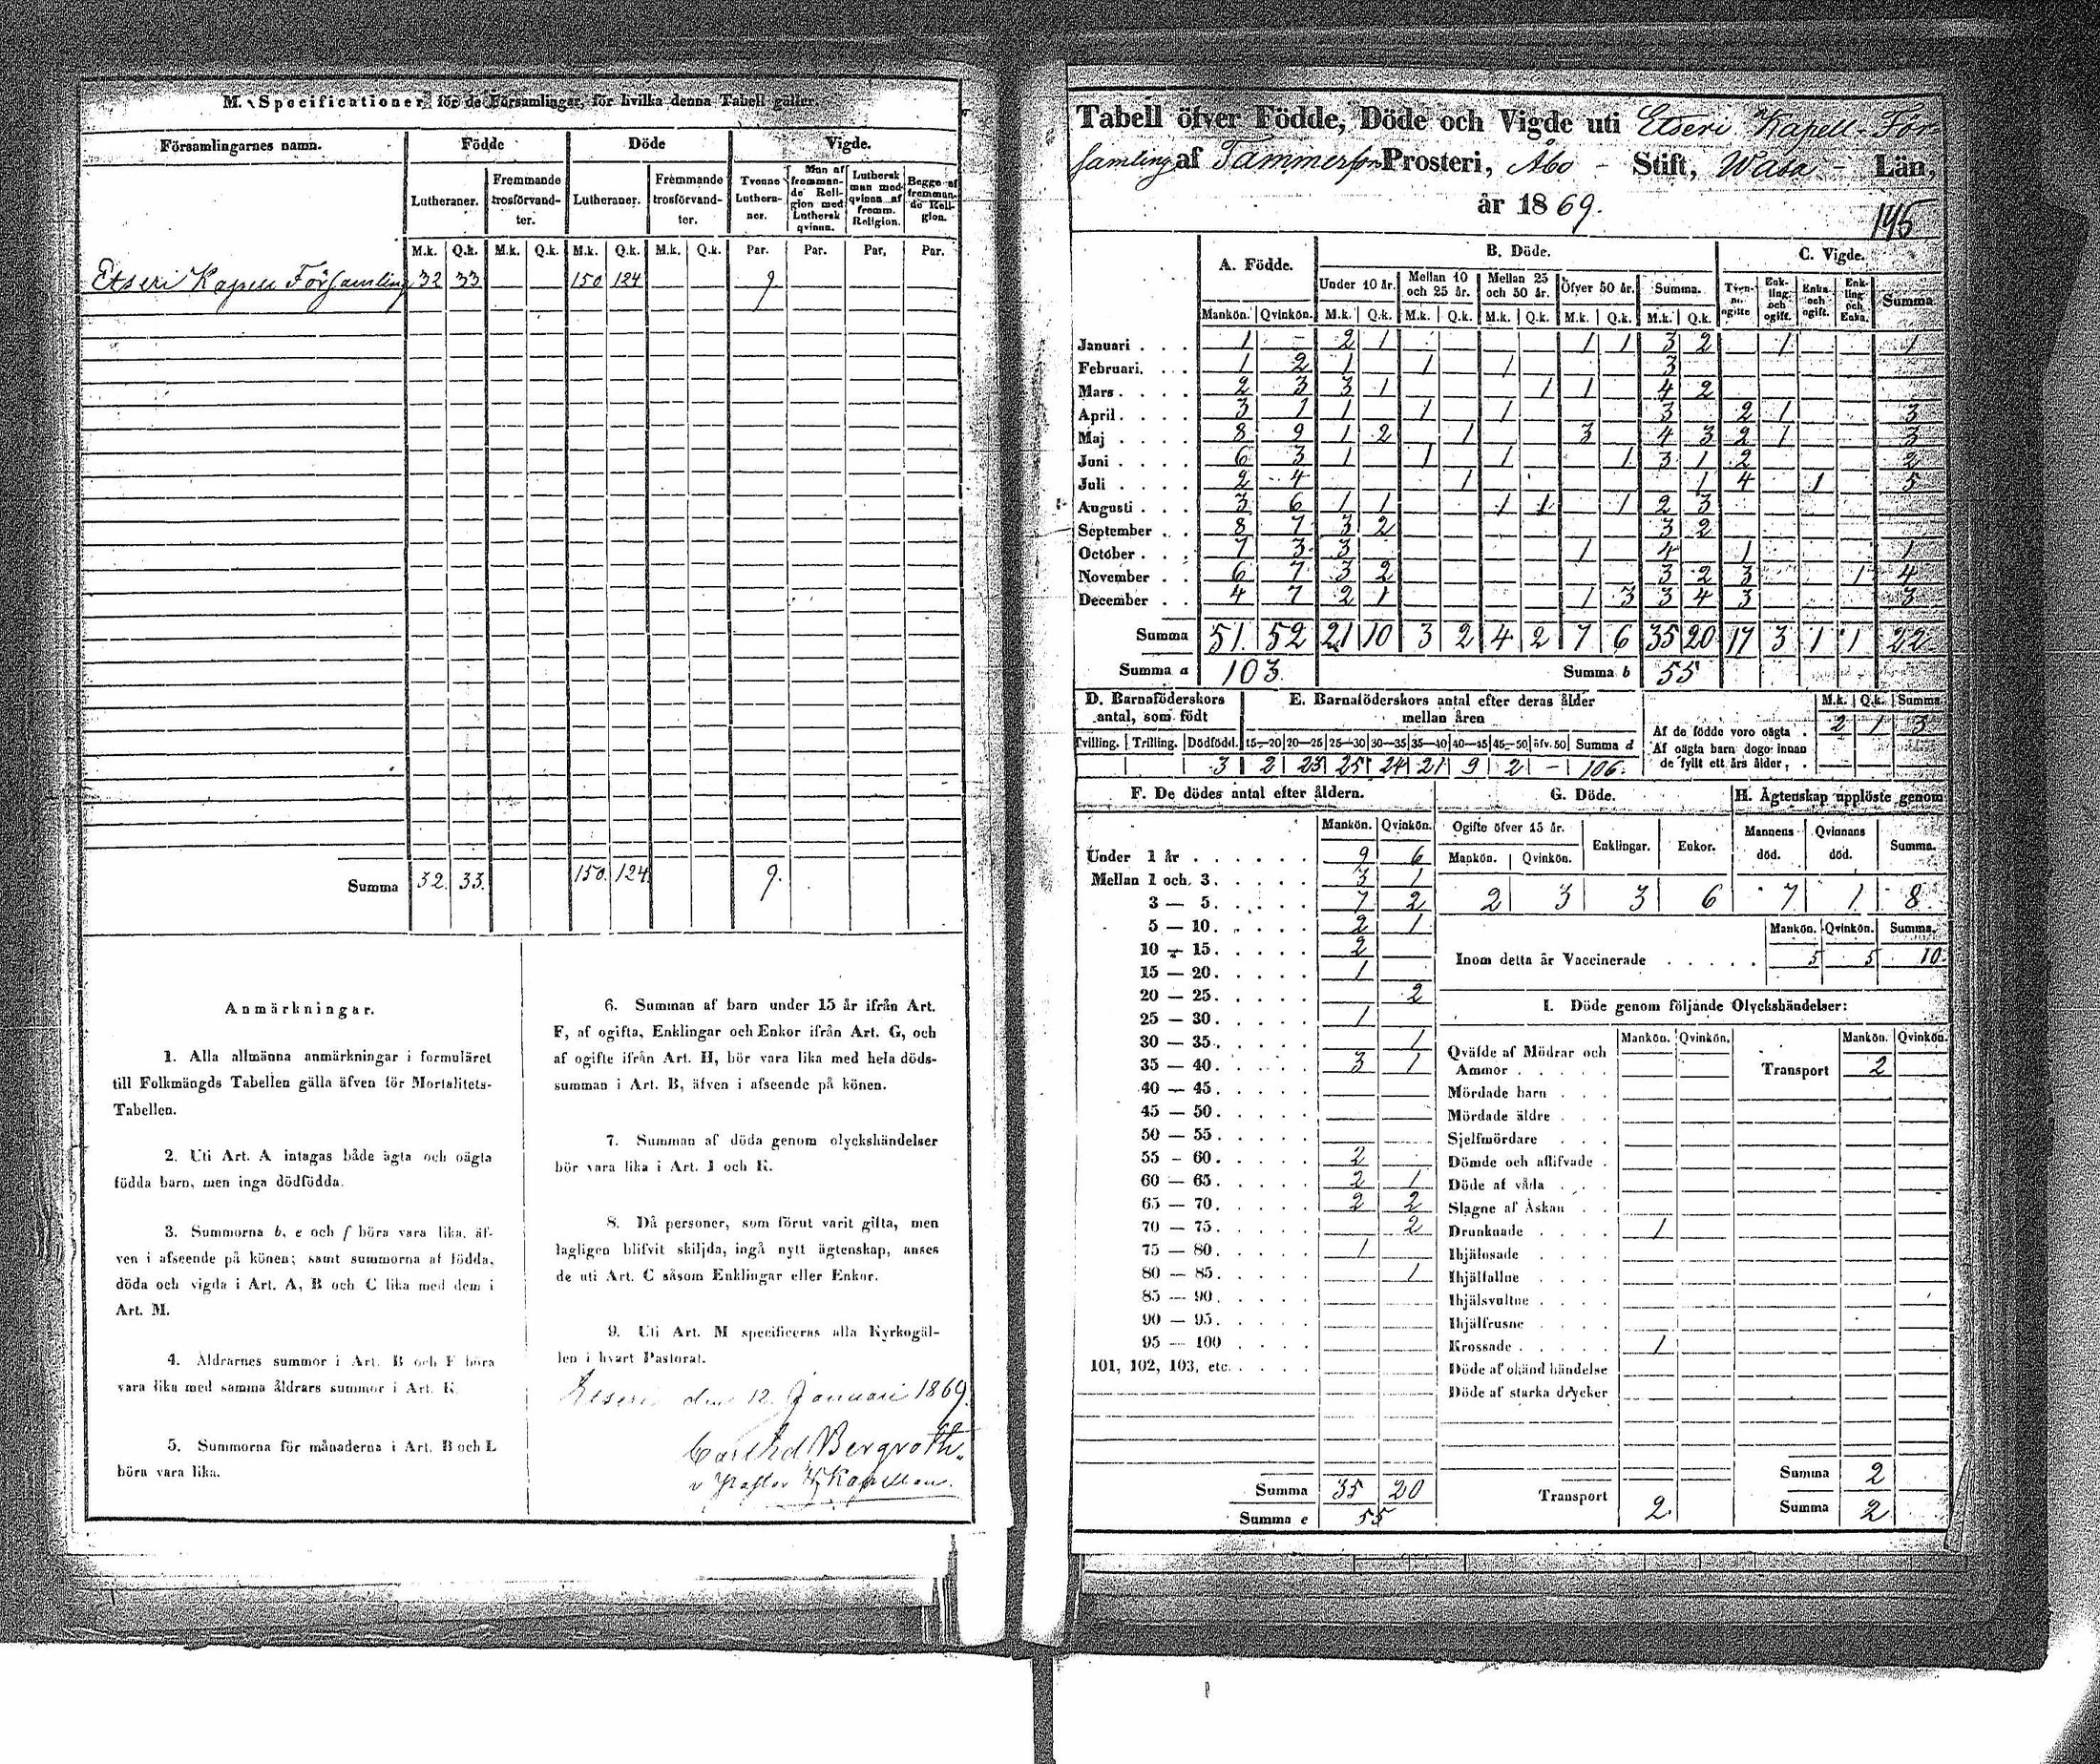 M. Specificationer för de Församlingar, för hvilka denna Tabell gäller.
Församlingarnes namn. Födde Döde Vigde.
Lutheraner. Fremmande trosförvandter. Lutheraner. Fremmande trosförvandter. Tvenne Lutheraner. Man af fremmande Religion med Luthersk qvinna. Luthersk man med qvinna af fremm. Religion. Begge af fremmande Religion.
M.k. Q.k. M.k. Q.k. M.k. Q.k. M.k. Q.k. Par. Par. Par. Par.
Etseri Kapell Församling 32 33 150 124 9
Summa 32. 33. 150. 124. 9.
Anmärkningar.
1. Alla allmänna anmärkningar i formuläret
till Folkmängds Tabellen gälla äfven för Mortalitets-
Tabellen.
2. Uti Art. A intagas både ägta och oägta
födda barn, men inga dödfödda.
3. Summorna b, e och f böra vara lika, äf-
ven i afseende på könen; samt summorna af födda,
döda och vigda i Art. A, B och C lika med dem i
Art. M.
4. Åldrarnes summor i Art. B och F böra
vara lika med samma åldrars summor i Art. K.
5. Summorna för månaderna i Art. B och L
böra vara lika.
6. Summan af barn under 15 år ifrån Art.
F, af ogifta, Enklingar och Enkor ifrån Art. G, och
af ogifte ifrån Art. H, bör vara lika med hela döds-
summan i Art. B, äfven i afseende på könen.
7. Summan af döda genom olyckshändelser
bör vara lika i Art. I och K.
8. Då personer, som förut varit gifta, men
lagligen blifvit skiljda, ingå nytt ägtenskap, anses
de uti Art. C såsom Enklingar eller Enkor.
9. Uti Art. M specificeras alla Kyrkogäl-
len i hvart Pastorat.
Etseri den 12. Januari 1869.
Bergroth
Kapellan.
Tabell öfver Födde, Döde och Vigde uti Etseri Kapell-För-
samling af Tammerfors Prosteri, Åbo - Stift, Wasa - Län,
år 1869.
195
A. Födde. B. Döde. C. Vigde.
Under 10 år. Mellan 10 och 25 år. Mellan 25 och 50 år. Öfver 50 år. Summa. Tvenne ogifte. Enkling och ogift. Enka och ogift. Enkling och Enka. Summa
Mankön. Qvinkön. M.k. Q.k. M.k. Q.k. M.k. Q.k. M.k. Q.k. M.k. Q.k.
Januari . . . 1 - 2 1 1 1 3 2 1 1
Februari. . . 1 2 1 1 1 3
Mars . . . . 2 3 3 1 1 1 4 2
April . . . . 3 1 1 1 1 3 2 1 3
Maj . . . . 8 9 1 2 1 3 4 3 2 1 3
Juni . . . . 6 3 1 1 1 1 3 1 2 2
Juli . . . . 2 4 1 1 4 1 5
Augusti . . . 3 6 1 1 1 1 1 2 3
September . . 8 7 3 2 3 2
October . . . 7 3 3 1 4 1 1
November . . 6 7 3 2 3 2 3 1 4
December . . 4 7 2 1 1 3 3 4 3 3
Summa 51. 52 21 10 3 2 4 2 7 6 35 20 17 3 1 1 22
Summa a 103. Summa b 55
D. Barnaföderskors antal, som födt
Tvilling. Trilling. Dödfödd.
3
E. Barnaföderskors antal efter deras ålder mellan åren
15—20 20—25 25—30 30—35 35—40 40—45 45—50 öfv. 50 Summa d
2 23 25 24 21 9 2 - 106.
M.k. Q.k. Summa
Af de födde voro oägta . 2 1 3
Af oägta barn dogo innan
de fyllt ett års ålder, .
F. De dödes antal efter åldern.
Mankön. Qvinkön.
Under 1 år . . . . . . 9 6
Mellan 1 och 3. . . . . 3 1
3 — 5. . . . . 7 2
5 — 10. . . . . 2 1
10 — 15. . . . . 2
15 — 20. . . . . 1
20 — 25. . . . . 2
25 — 30. . . . . 1
30 — 35. . . . . 1
35 — 40. . . . . 3 1
40 — 45. . . . .
45 — 50. . . . .
50 — 55. . . . .
55 — 60. . . . . 2
60 — 65. . . . . 2 1
65 — 70. . . . . 2 2
70 — 75. . . . . 2
75 — 80. . . . . 1
80 — 85. . . . . 1
85 — 90. . . . .
90 — 95. . . . .
95 — 100 . . . .
101, 102, 103, etc. . . . .
Summa 35 20
Summa e 55
G. Döde.
Ogifte öfver 15 år. Enklingar. Enkor.
Mankön. Qvinkön.
2 3 3 6
H. Ägtenskap upplöste genom
Mannens död. Qvinnans död. Summa.
7 1 8
Mankön. Qvinkön. Summa.
Inom detta år Vaccinerade . . . . . 5 5 10.
I. Döde genom följande Olyckshändelser:
Mankön. Qvinkön. Mankön. Qvinkön.
Qväfde af Mödrar och
Ammor . . . . . Transport 2
Mördade barn . . .
Mördade äldre . . .
Sjelfmördare . . .
Dömde och aflifvade .
Döde af våda . . .
Slagne af Åskan . .
Drunknade . . . . 1
Ihjälosade . . . .
Ihjälfallne . . . .
Ihjälsvultne . . . .
Ihjälfrusne . . . .
Krossade . . . . . 1
Döde af okänd händelse
Döde af starka drycker
Summa 2
Transport 2. Summa 2